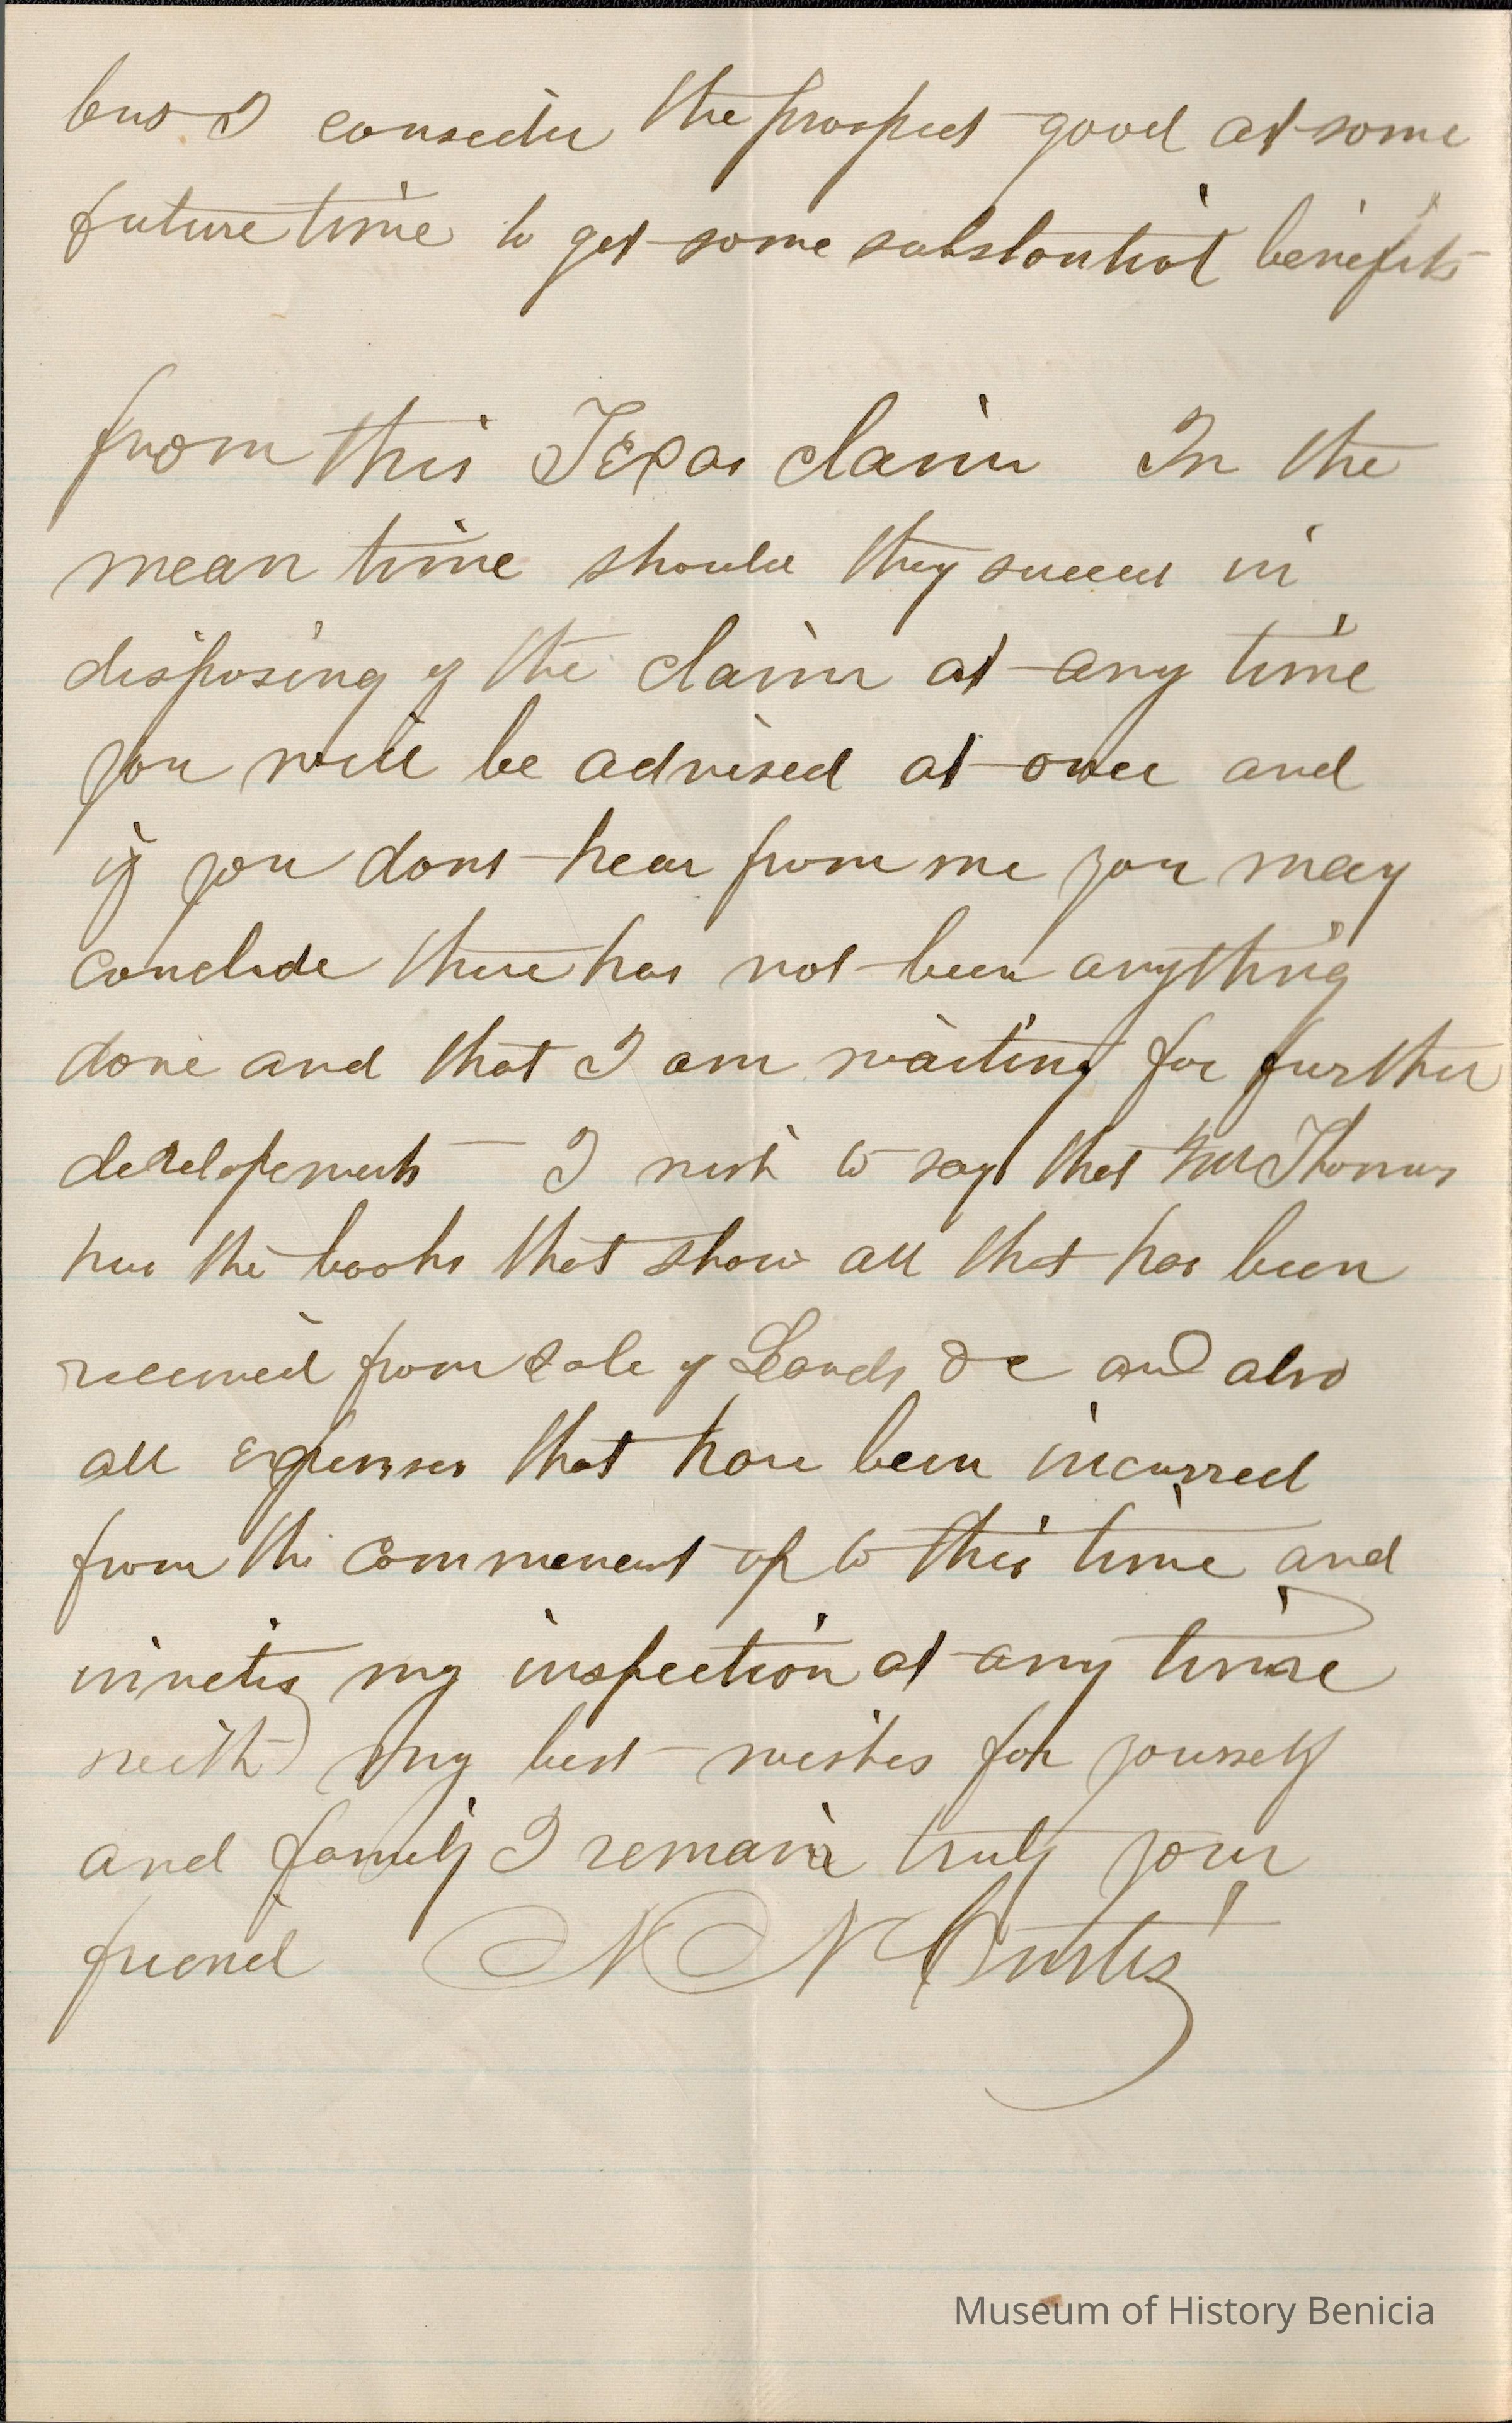 but I consider the prospect good at some
future time to get some substantial benefits
from this Texas claim In the
mean time should they succeed in
disposing of the claim at any time
you will be advised at once and
if you dont hear from me you may
conclude there has not been anything
done and that I am waiting for further
developements — I wish to say that Mr Thomas
has the books that show all that has been
received from sale of Lands &c and also
all expenses that have been incurred
from the commencent up to this time and
invites my inspection at any time
with my best wishes for yourself
and family I remain truly your
friend N N Curtis
Museum of History Benicia